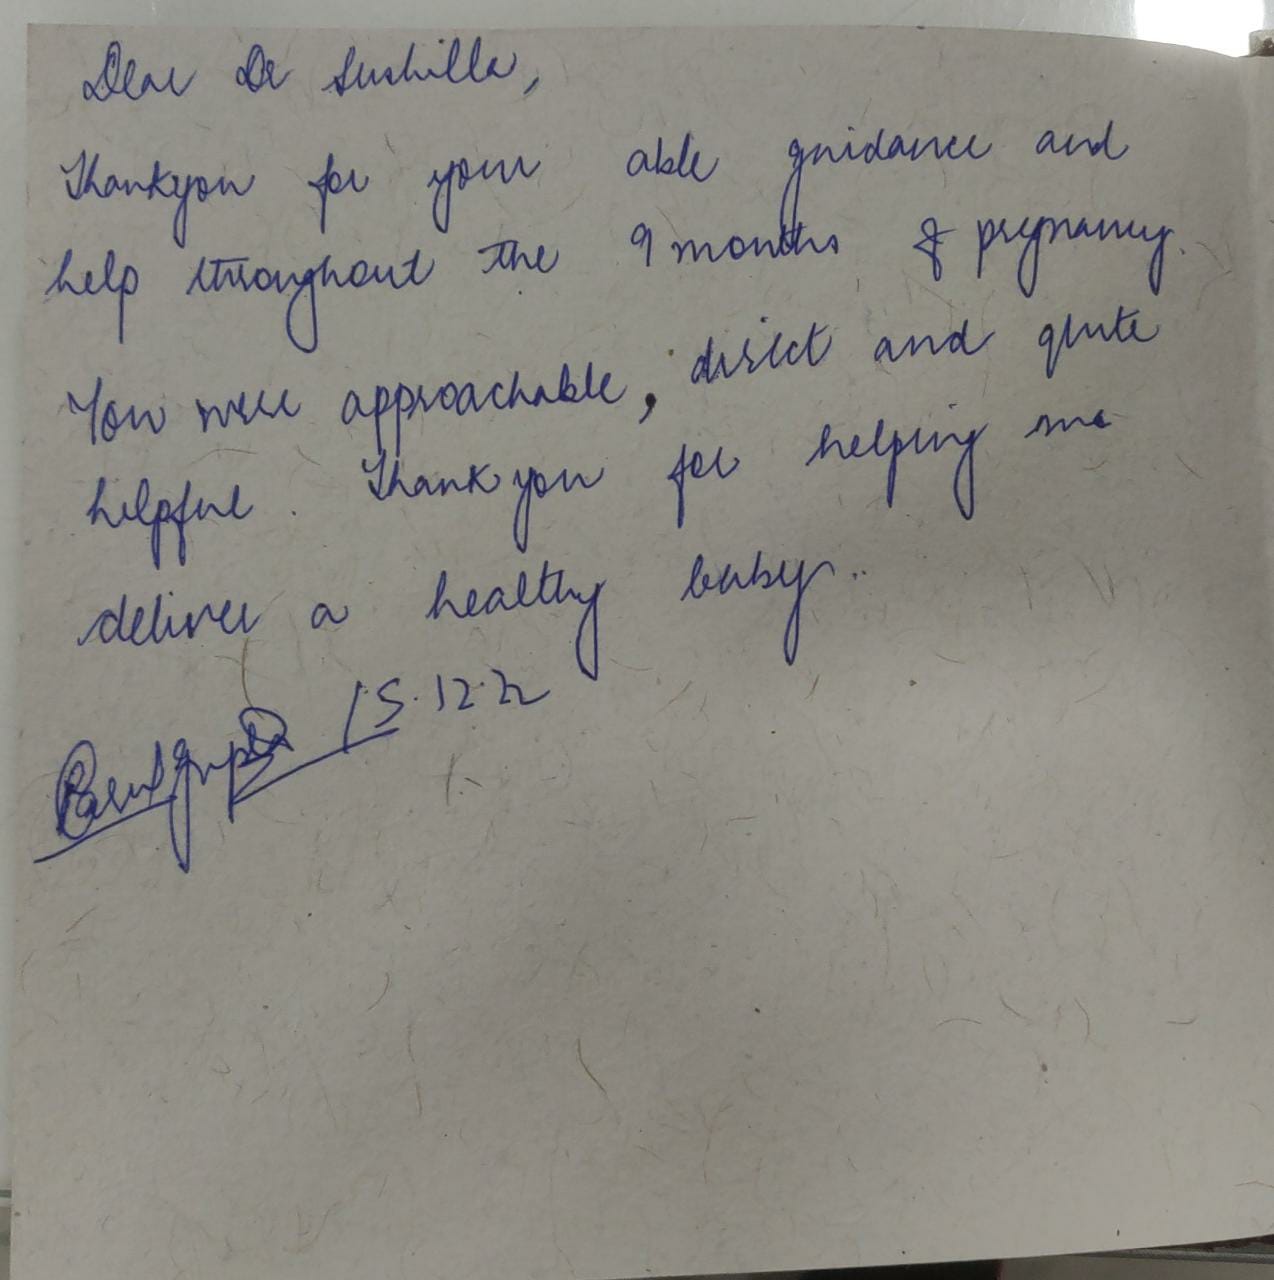 Dear Dr Sushilla,
Thankyou for your able guidance and
help throughout the 9 months of pregnancy.
You were approachable, direct and quite
helpful. Thank you for helping me
deliver a healthy baby..
15.12.22